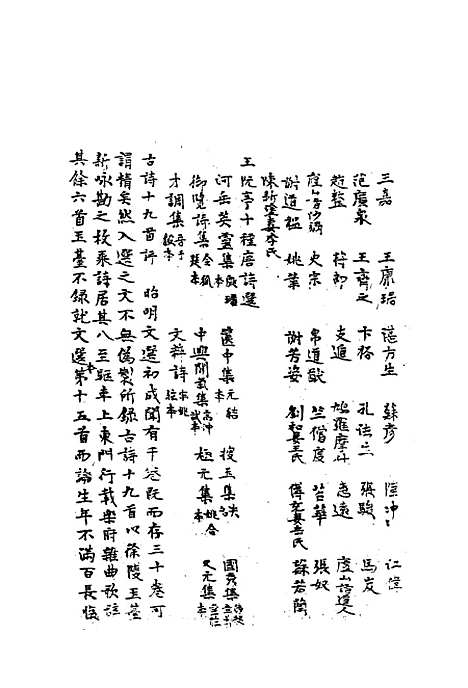 王嘉 王康琚 湛方生 蘇彥
范廣泉 王齊之 卞裕 孔法生 張駿 馬岌
趙整 苻朗 支遁 鳩羅摩什 惠遠 廬山諸道人
廬山諸沙彌 史宗 帛道猷 竺僧度 苕華 張奴
謝道韞 姚萇 謝芳姿 劉和妻王氏 傅充妻辛氏 蘇若蘭
陳新塗妻李氏
王阮亭十種唐詩選
河岳英靈集殷璠本 篋中集元結本 搜玉集 國秀集
御覽詩集令狐楚本 中興間氣集高仲武本 極元集姚合本 又元集
才調集 文粹詩姚鉉本
古詩十九首評 昭明文選初成聞有千卷既而存三十卷可
謂精矣然入選之文不無偽製所錄古詩十九首以徐陵玉臺
新詠勘之枚乘詩居其八至驅車上東門行載樂府雜曲歌詞
其餘六首玉臺不錄就文選本第十五首而論生年不滿百長懷